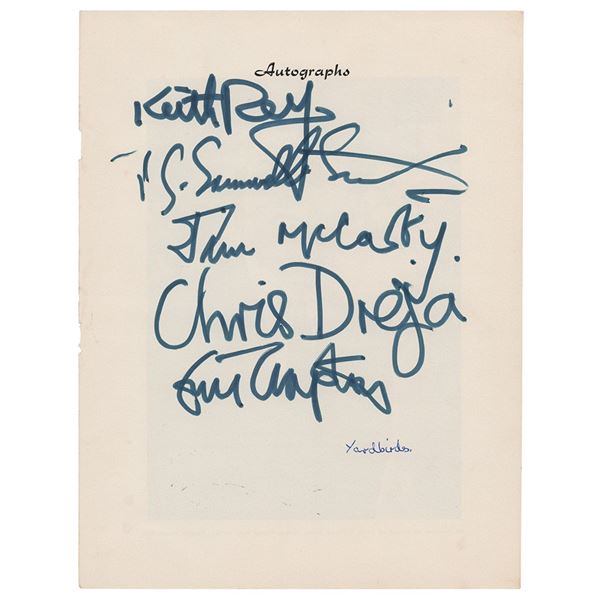 Autographs
Keith Relf
P. G. Samwell Smith
Jim McCarty.
Chris Dreja
Eric Clapton
Yardbirds.